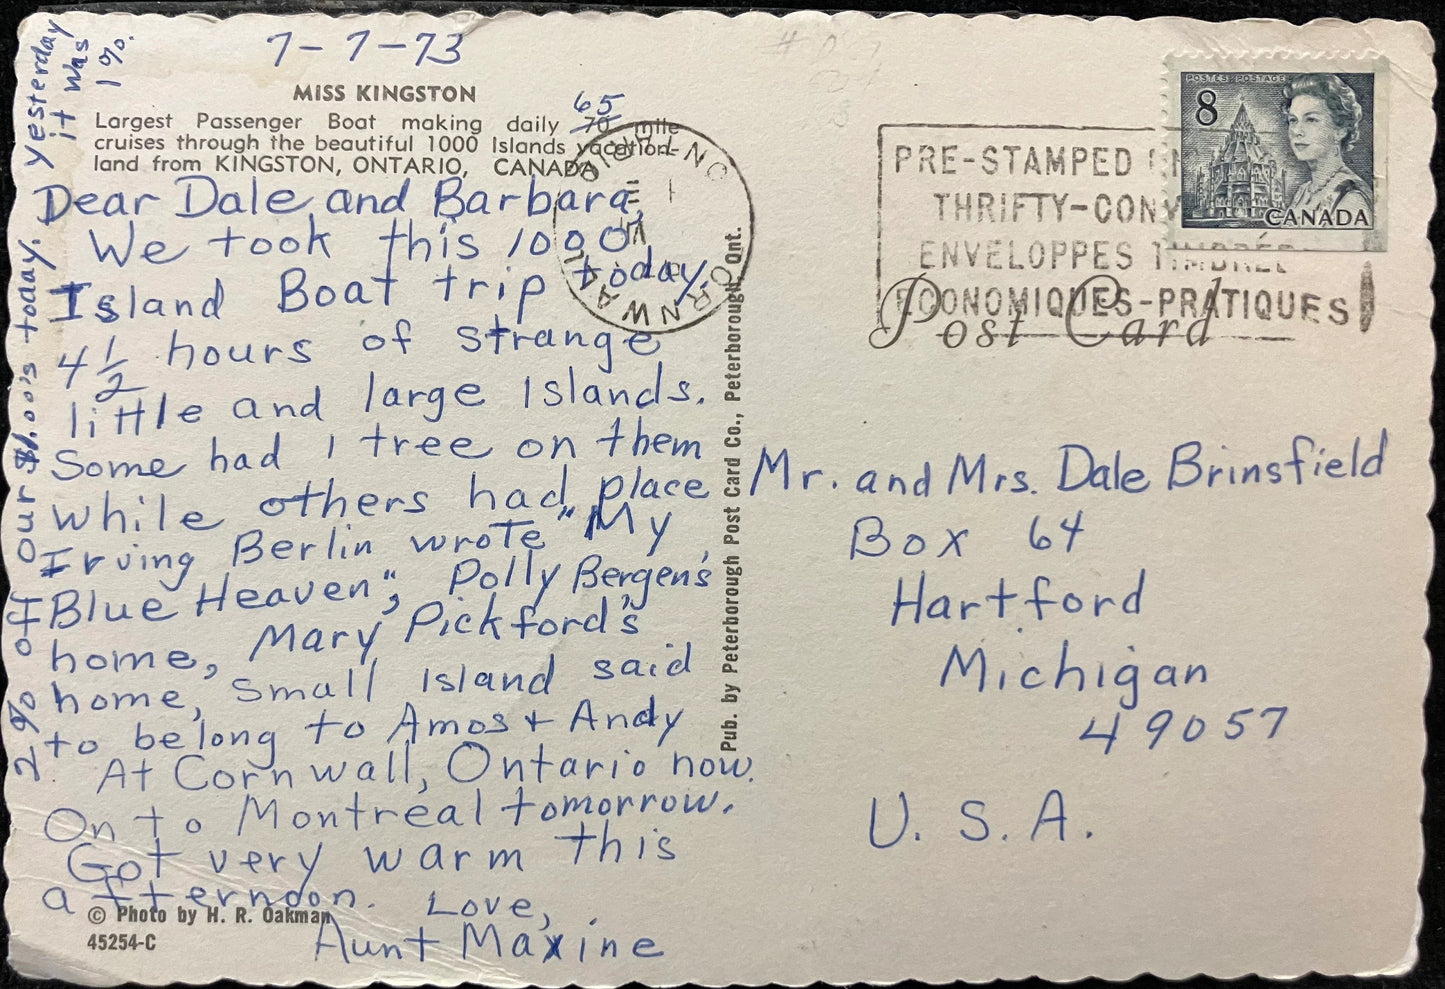 7-7-73
MISS KINGSTON
65
Largest Passenger Boat making daily 70 mile
cruises through the beautiful 1000 Islands vacation-
land from KINGSTON, ONTARIO, CANADA
Dear Dale and Barbara,
We took this 1000
Island Boat trip today.
4 1/2 hours of strange
little and large Islands.
Some had 1 tree on them
while others had place
Irving Berlin wrote "My
Blue Heaven", Polly Bergen's
home, Mary Pickford's
home, small Island said
to belong to Amos + Andy
At Cornwall, Ontario now.
On to Montreal tomorrow.
Got very warm this
afternoon. Love,
Aunt Maxine
2% off our $1.00's today.
Yesterday
it was
1%.
© Photo by H. R. Oakman
45254-C
Pub. by Peterborough Post Card Co., Peterborough, Ont.
CORNWALL
PRE-STAMPED
THRIFTY-CONV
ENVELOPPES TIMBRÉE
ECONOMIQUES-PRATIQUES!
POSTES POSTAGE
8
CANADA
Post Card
Mr. and Mrs. Dale Brinsfield
Box 64
Hartford
Michigan
49057
U. S. A.